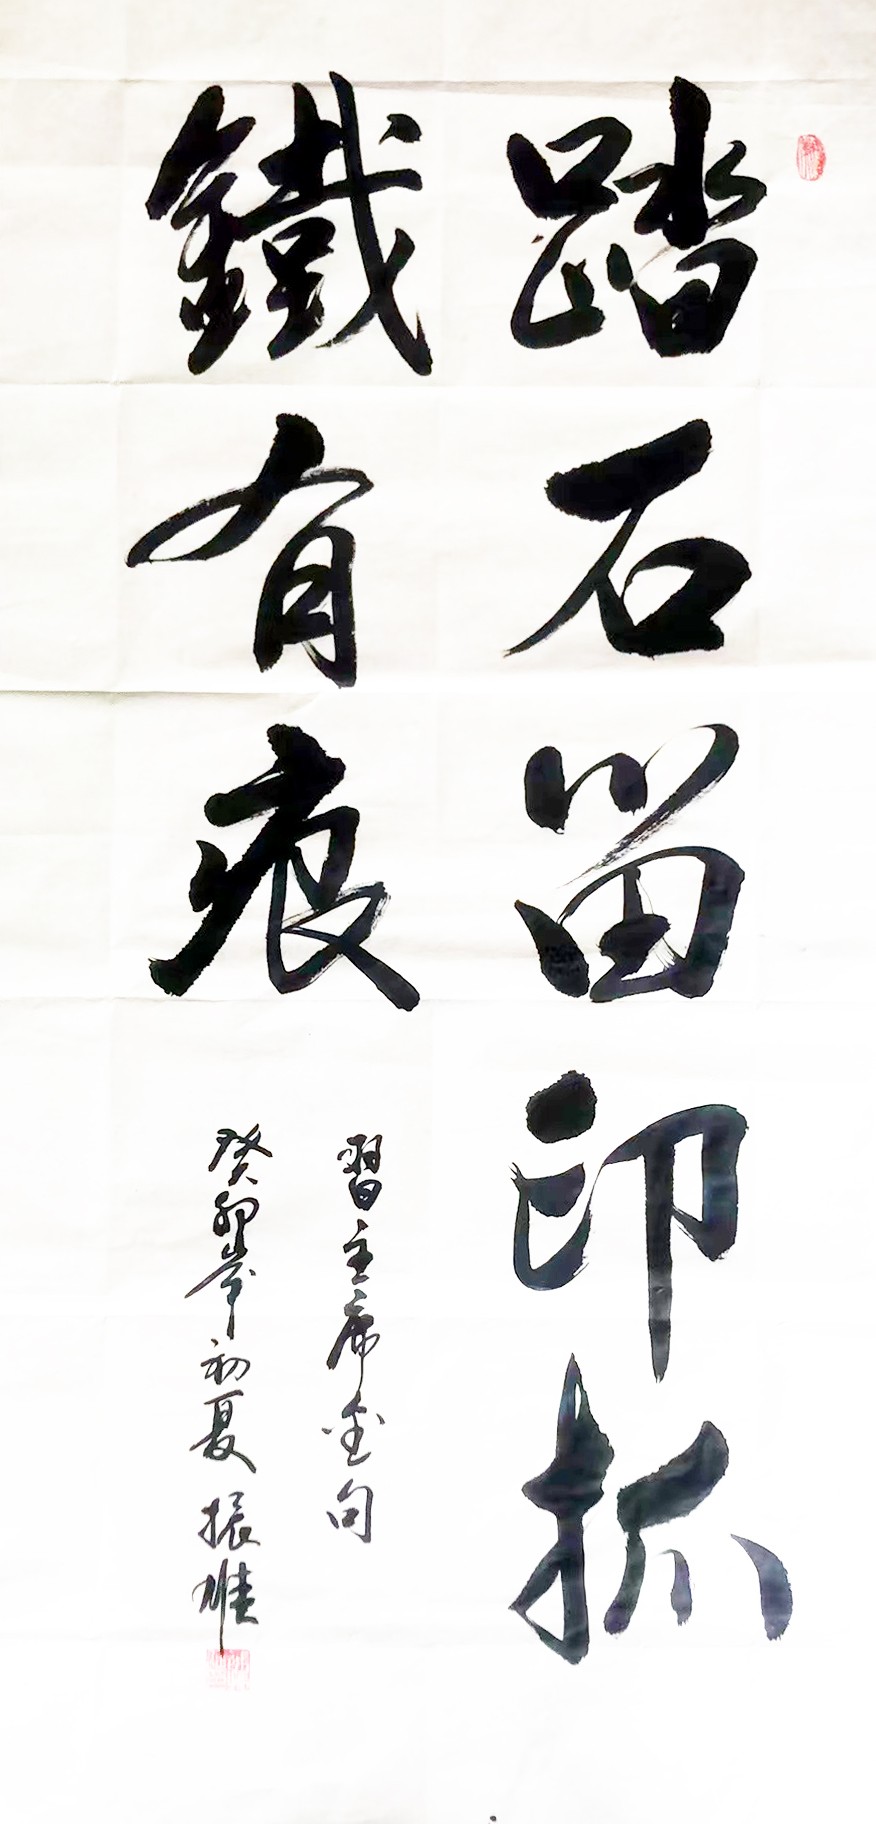 踏石留印抓
鐵有痕
習主席金句
癸卯年初夏振雄